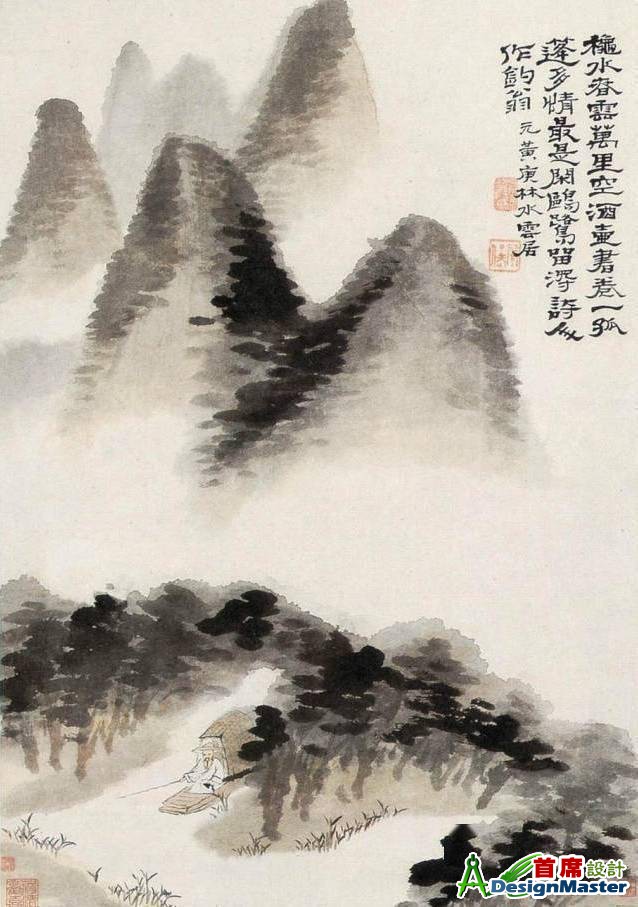 穐水春雲萬里空酒壺書卷一孤
蓬多情最是閑鷗鷺留淂詩人
作釣翁 元黃庚林水雲居
首席設計
DesignMaster